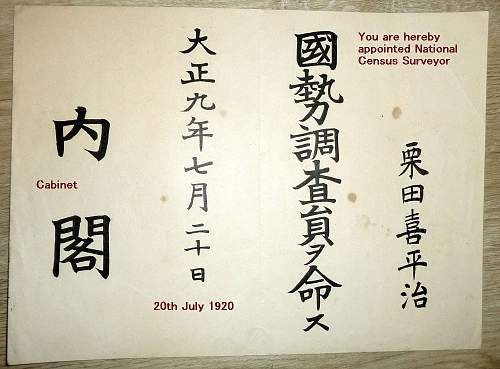 栗田喜平治
國勢調査員ヲ命ス
大正九年七月二十日
内閣
You are hereby
appointed National
Census Surveyor
20th July 1920
Cabinet